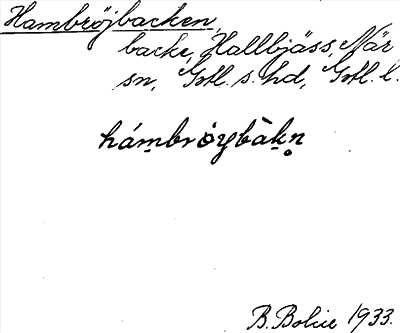 Hambröjbacken,
backe, Hallbjäss, När
sn, Gotl. s. hd, Gotl. l.
hámbrȯybàḵn̥
B. Bolin 1933.